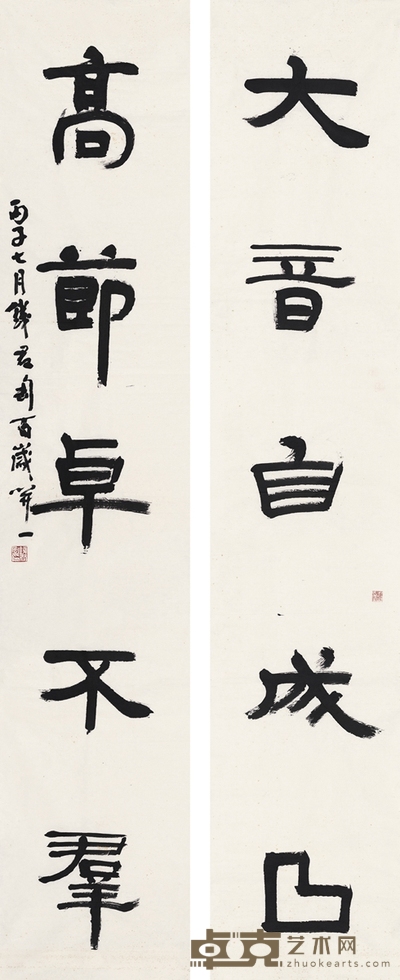 大音自成曲
高節卓不羣
丙子七月錢君匋百歲開一
卓克艺术网
zhuokearts.com